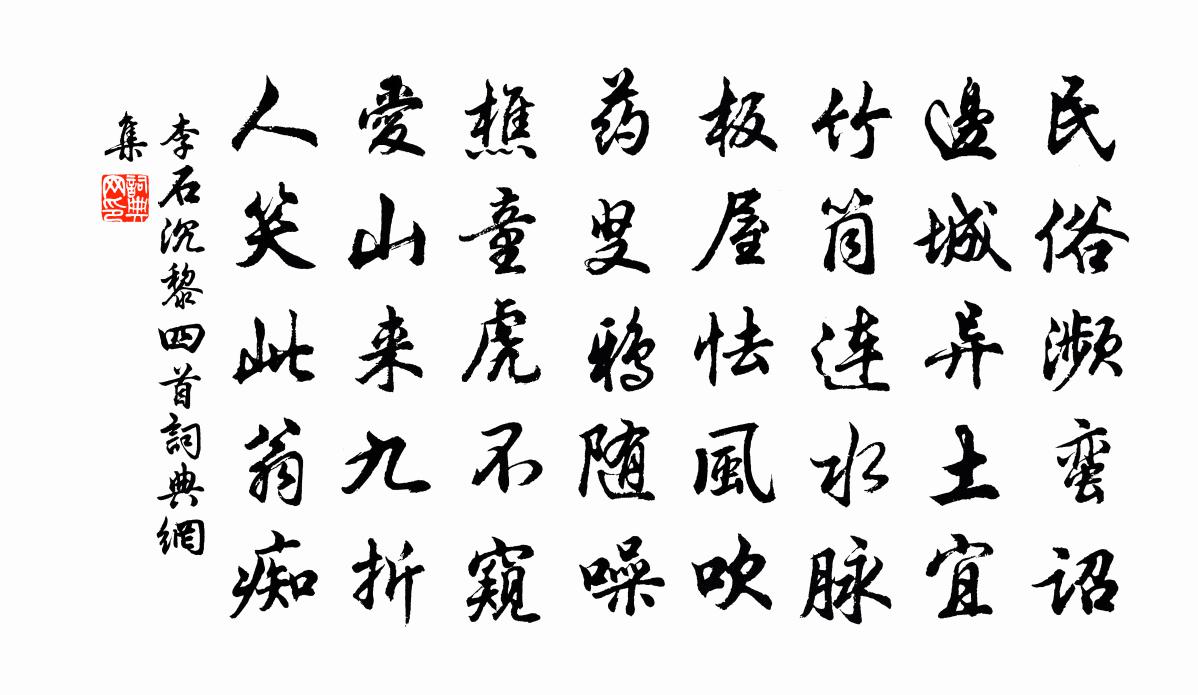 民俗濒蛮诏
邊城异土宜
竹筒连水脉
板屋怯風吹
药叟鸦随噪
樵童虎不窥
愛山来九折
人笑此翁痴
李石沉黎四首詞典網
集
詞典
网印